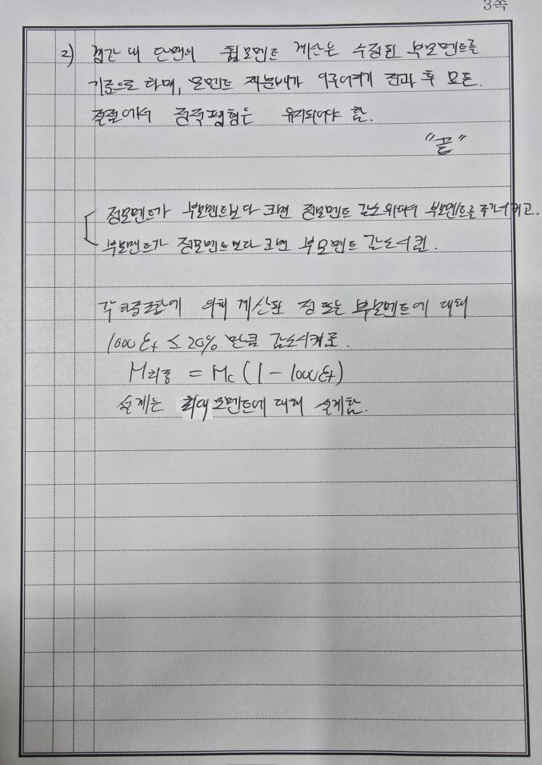 3쪽
2) 경간 내 단면의 휨모멘트 계산은 수정된 부모멘트를
기준으로 하며, 모멘트 재분배가 이루어지기 전과 후 모든
절점에서 정적평형은 유지되어야 함.
"끝"
정모멘트가 부모멘트보다 크면 정모멘트 감소위하여 부모멘트를 증가시키고.
부모멘트가 정모멘트보다 크면 부모멘트 감소시킴.
각 하중조합에 의해 계산된 정 또는 부모멘트에 대해
1000 εt ≤ 20% 만큼 감소시키고.
M최종 = Mc (1 - 1000εt)
설계는 최대모멘트에 대해 설계함.